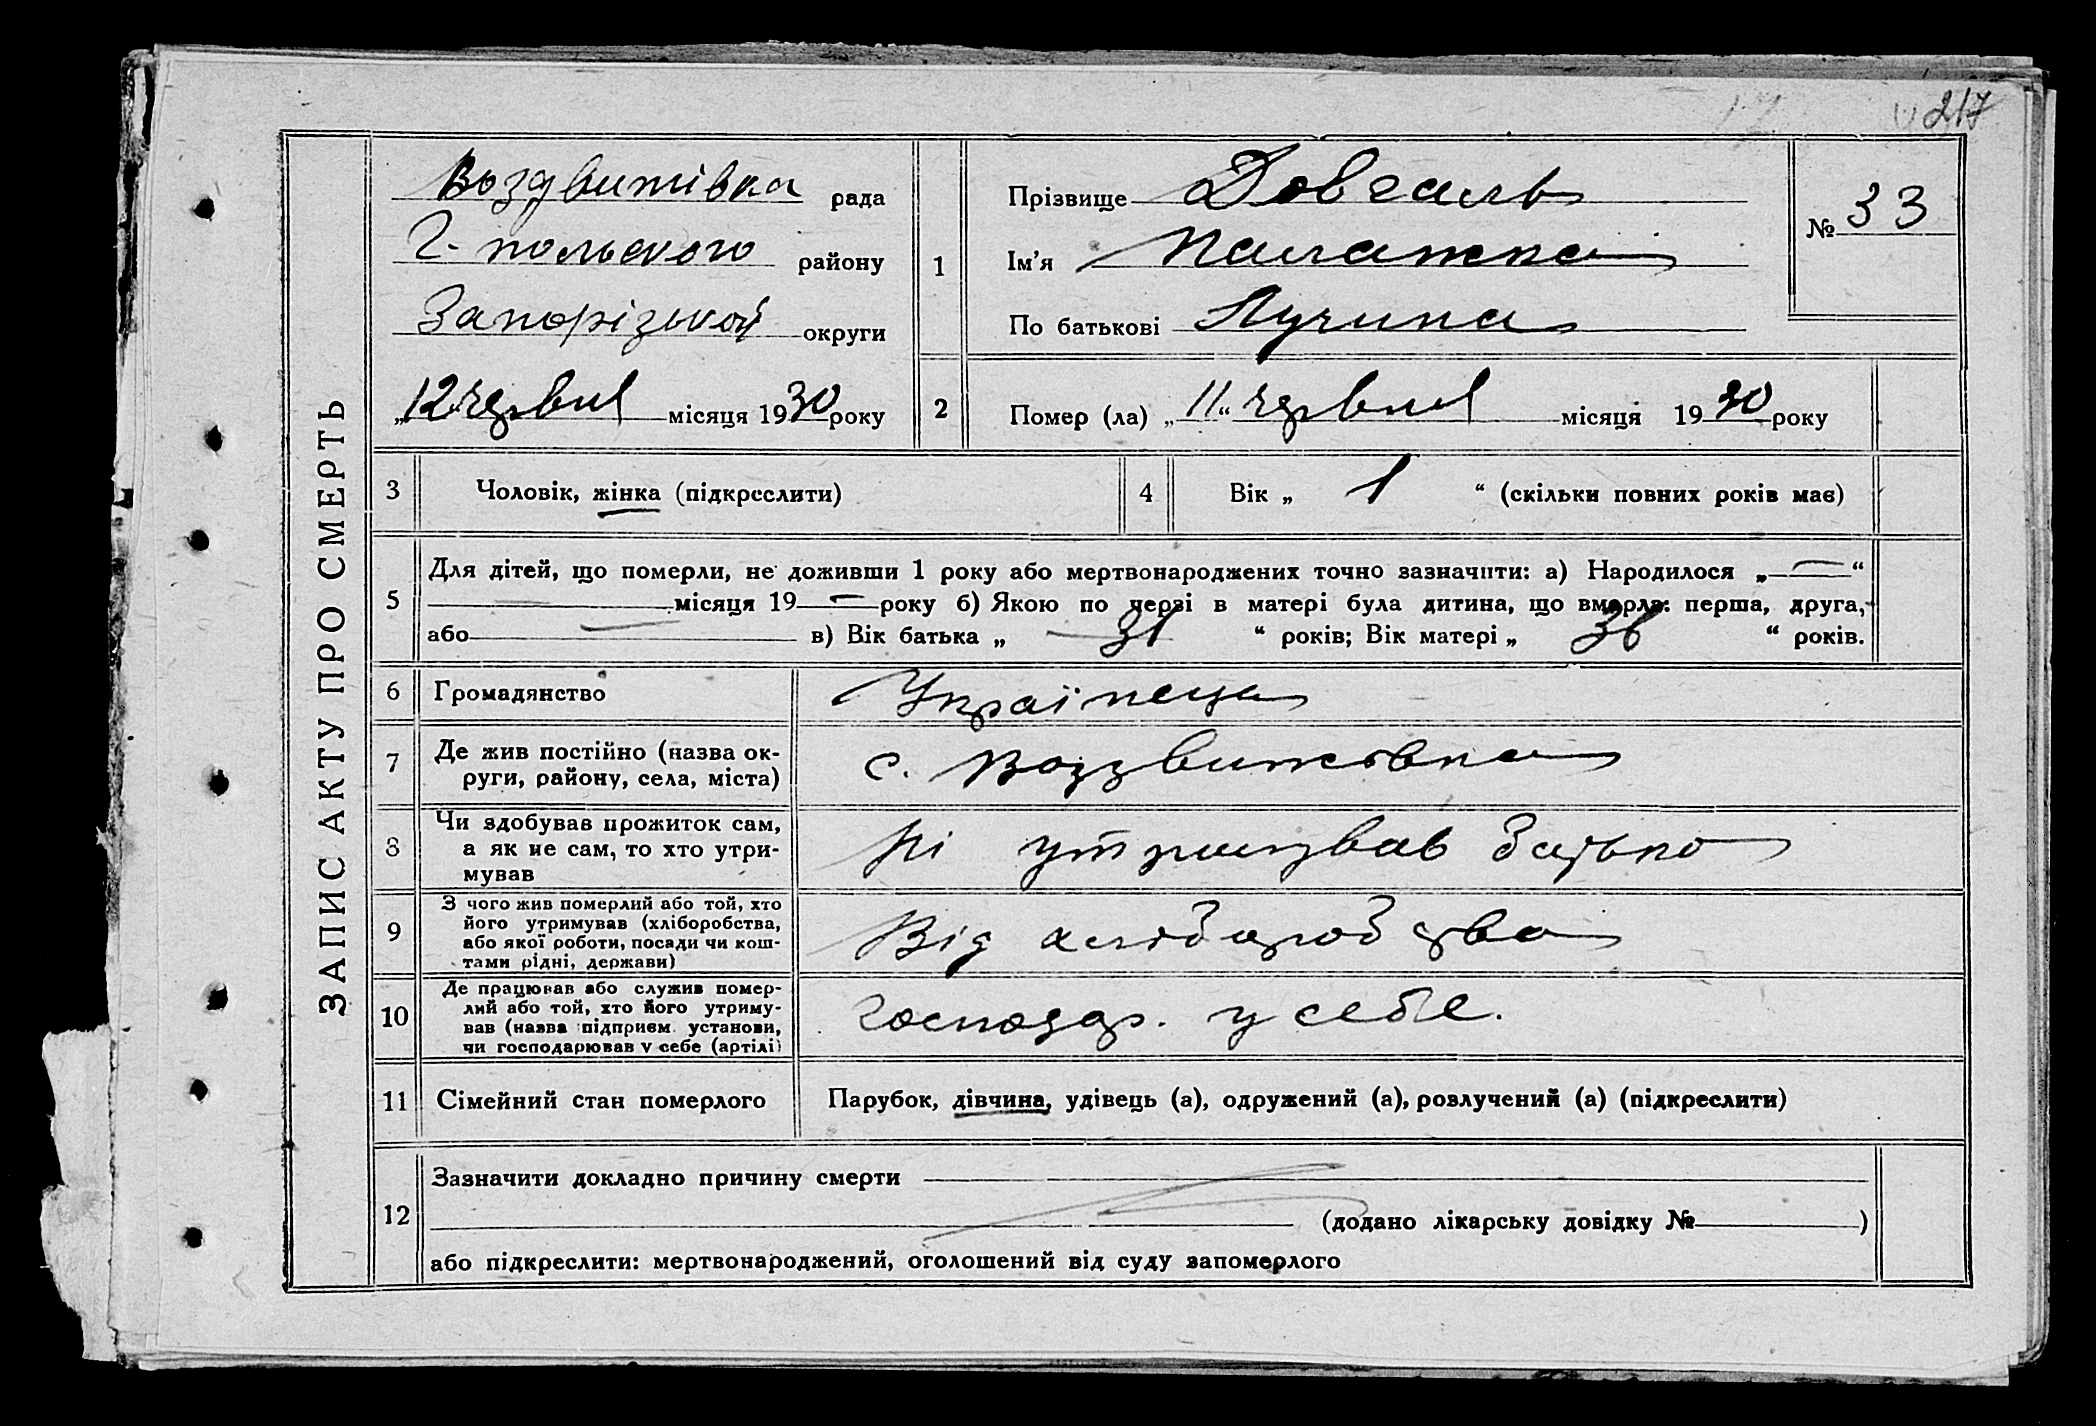 217
ЗАПИС АКТУ ПРО СМЕРТЬ
Воздвижівка рада
Г-польского району
Запорізької округи
„12 червня місяця 1930 року
1
Прізвище Довгаль
Ім’я Палажка
По батькові Лучина
№ 33
2
Помер (ла) „11“ червня місяця 1930 року
3 Чоловік, жінка (підкреслити)
4 Вік „ 1 “ (скільки повних років має)
5 Для дітей, що померли, не доживши 1 року або мертвонароджених точно зазначити: а) Народилося „—“
— місяця 19 — року б) Якою по черзі в матері була дитина, що вмерла: перша, друга,
або — в) Вік батька „ 31 “ років; Вік матері „ 36 “ років.
6 Громадянство Українеца
7 Де жив постійно (назва ок-
руги, району, села, міста)
с. Воздвижівка
8 Чи здобував прожиток сам,
а як не сам, то хто утри-
мував
Ні утримував батько
9 З чого жив померлий або той, хто
його утримував (хліборобства,
або якої роботи, посади чи кош-
тами рідні, держави)
Від хліборобства
10 Де працював або служив помер-
лий або той, хто його утриму-
вав (назва підприєм. установи,
чи господарював у себе (артілі)
Господар. у себе.
11 Сімейний стан померлого Парубок, дівчина, удівець (а), одружений (а), розлучений (а) (підкреслити)
12 Зазначити докладно причину смерти
(додано лікарську довідку № )
або підкреслити: мертвонароджений, оголошений від суду запомерлого